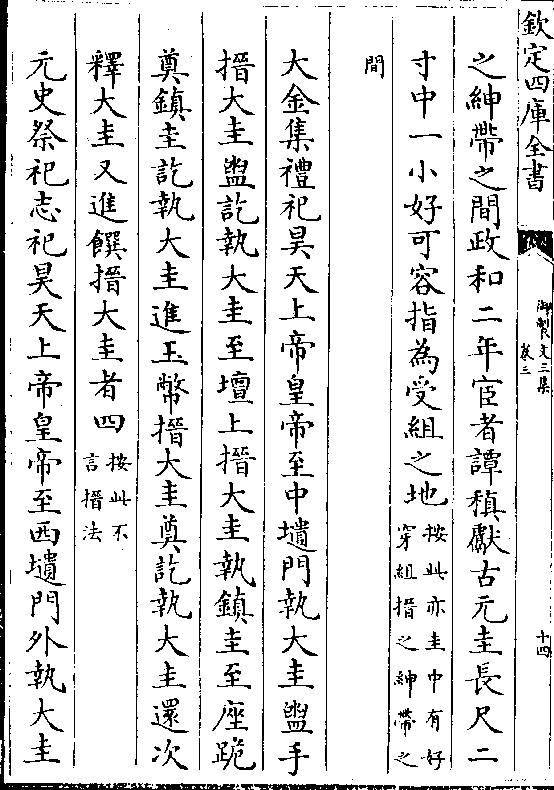 欽定四庫全書
御製文三集
卷三
十四
之紳帶之間政和二年宦者譚稹獻古元圭長尺二
寸中一小好可容指為受組之地按此亦圭中有好
穿組搢之紳帶之
間
大金集禮祀昊天上帝皇帝至中壝門執大圭盥手
搢大圭盥訖執大圭至壇上搢大圭執鎮圭至座跪
奠鎮圭訖執大圭進玉幣搢大圭奠訖執大圭還次
釋大圭又進饌搢大圭者四按此不
言搢法
元史祭祀志祀昊天上帝皇帝至西壝門外執大圭